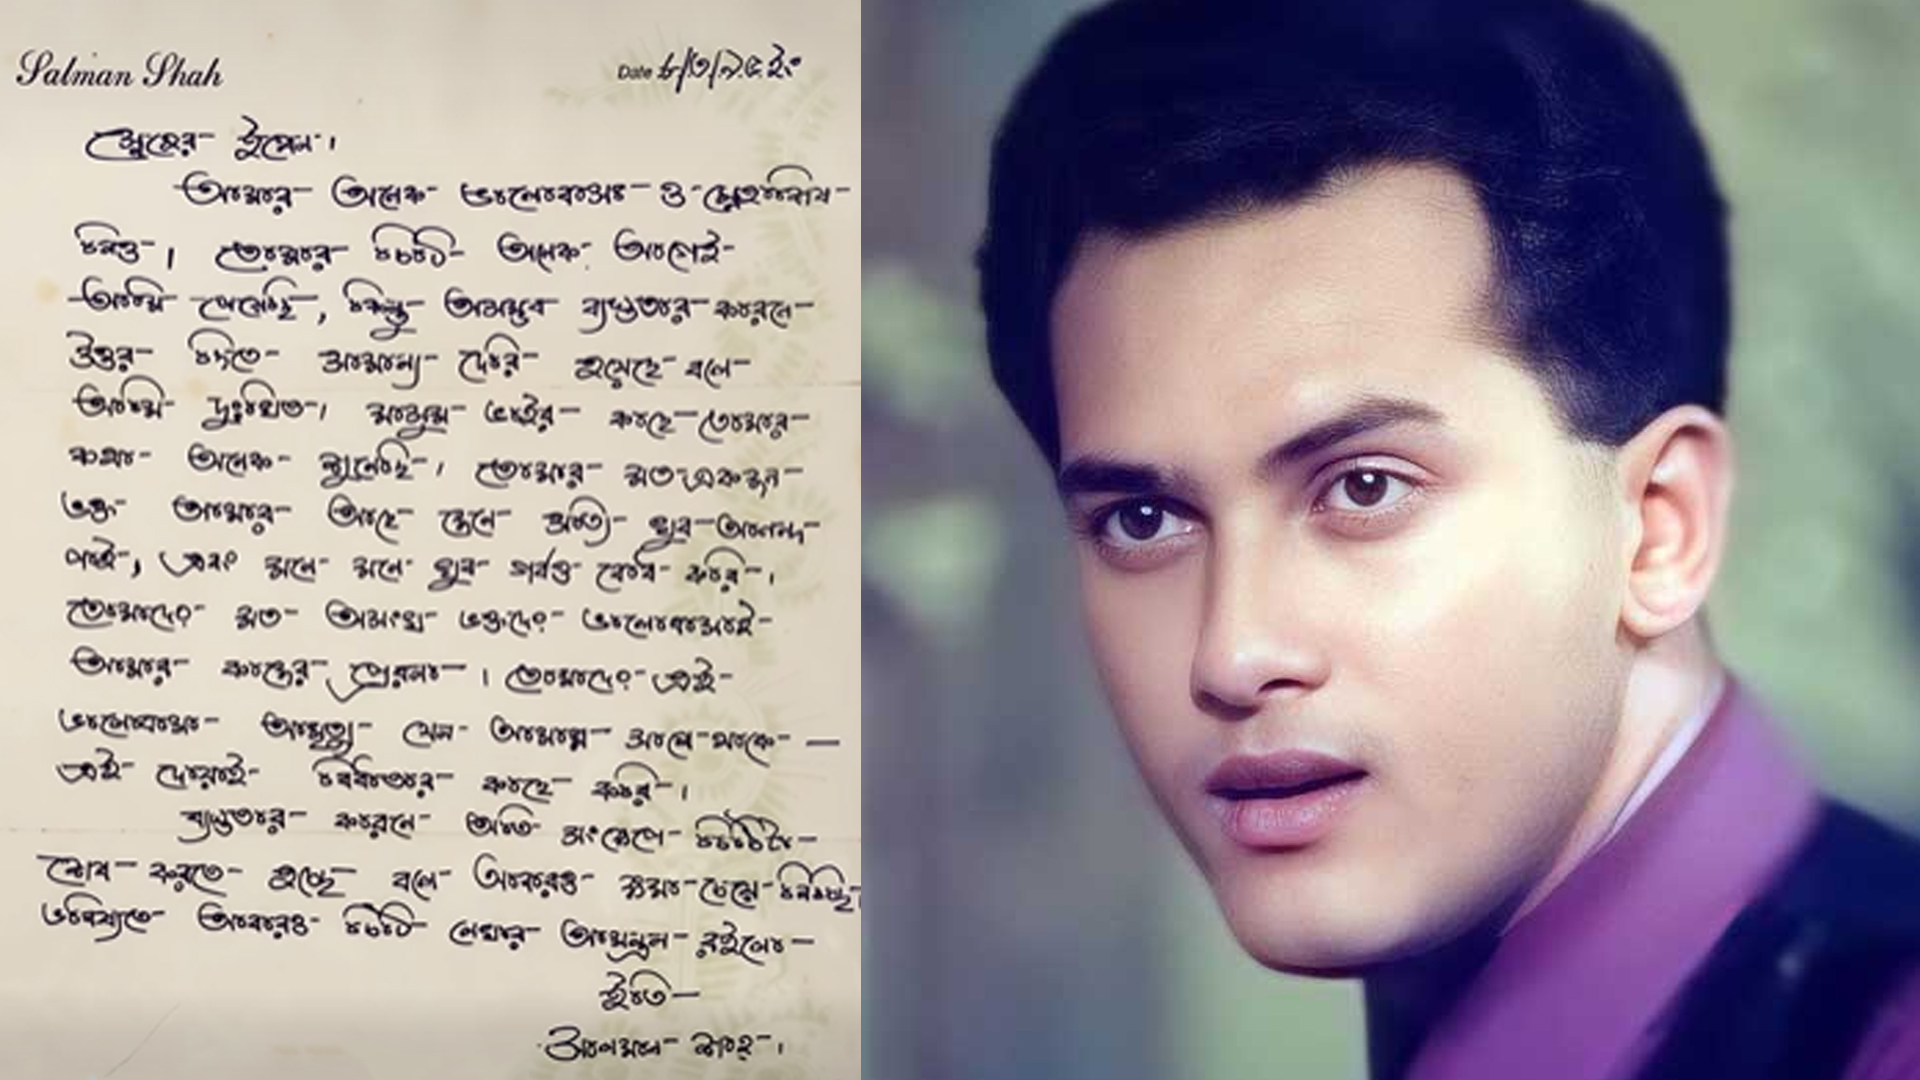 Salman Shah
Date ৮/৩/৯৫ ইং
স্নেহের ইপেল।
আমার অনেক ভালোবাসা ও স্নেহাশীষ
নিও। তোমার চিঠি অনেক আগেই
আমি পেয়েছি, কিন্তু অসম্ভব ব্যস্ততার কারনে
উত্তর দিতে সামান্য দেরি হয়েছে বলে
আমি দুঃখিত। মাসুম ভাইর কাছে তোমার
কথা অনেক শুনেছি। তোমার মত একজন
ভক্ত আমার আছে জেনে সত্যি খুব আনন্দ
পাই, এবং মনে মনে খুব গর্বও বোধ করি।
তোমাদের মত অসংখ্য ভক্তদের ভালোবাসাই
আমার কাজের প্রেরনা। তোমাদের এই
ভালোবাসা আমৃত্যু যেন আমার সাথে থাকে —
এই দোয়াই বিধাতার কাছে করি।
ব্যস্ততার কারনে অতি সংক্ষেপে চিঠিটি
শেষ করতে হচ্ছে বলে আবারও ক্ষমা চেয়ে নিচ্ছি।
ভবিষ্যতে আবারও চিঠি লেখার আমন্ত্রন রইলো
ইতি—
সালমান শাহ।